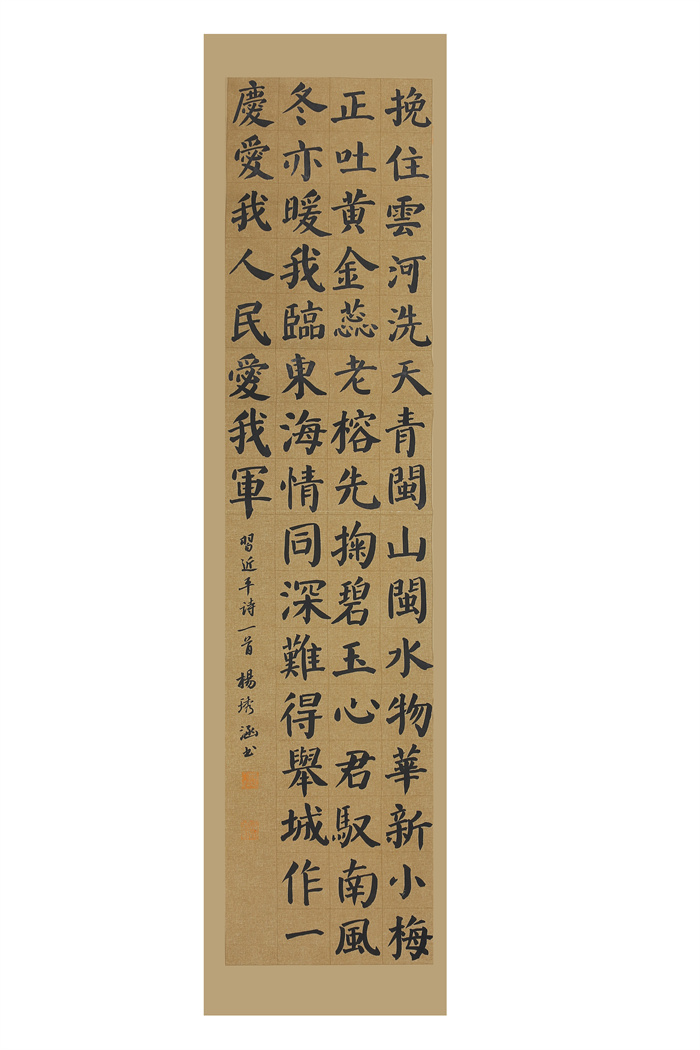 挽住雲河洗天青閩山閩水物華新小梅
正吐黄金蕊老榕先掬碧玉心君馭南風
冬亦暖我臨東海情同深難得舉城作一
慶愛我人民愛我軍
習近平诗一首 楊琇涵书